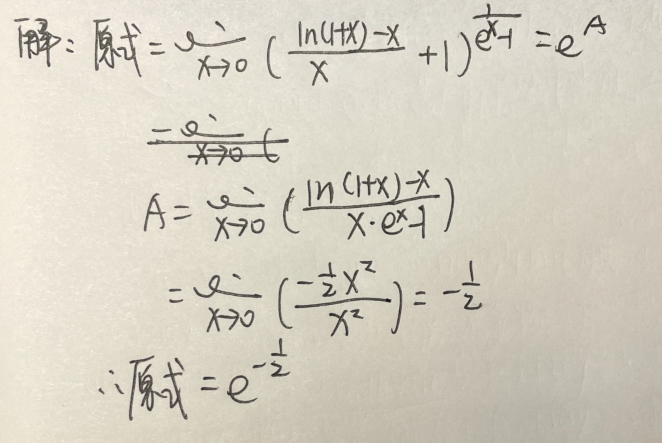 解：原式 = lim x→0 ( (ln(1+x)-x)/x + 1 )^(1/(e^x-1)) = e^A
A = lim x→0 ( (ln(1+x)-x)/(x·e^x-1) )
= lim x→0 ( (-1/2 x²)/x² ) = -1/2
∴原式 = e^(-1/2)